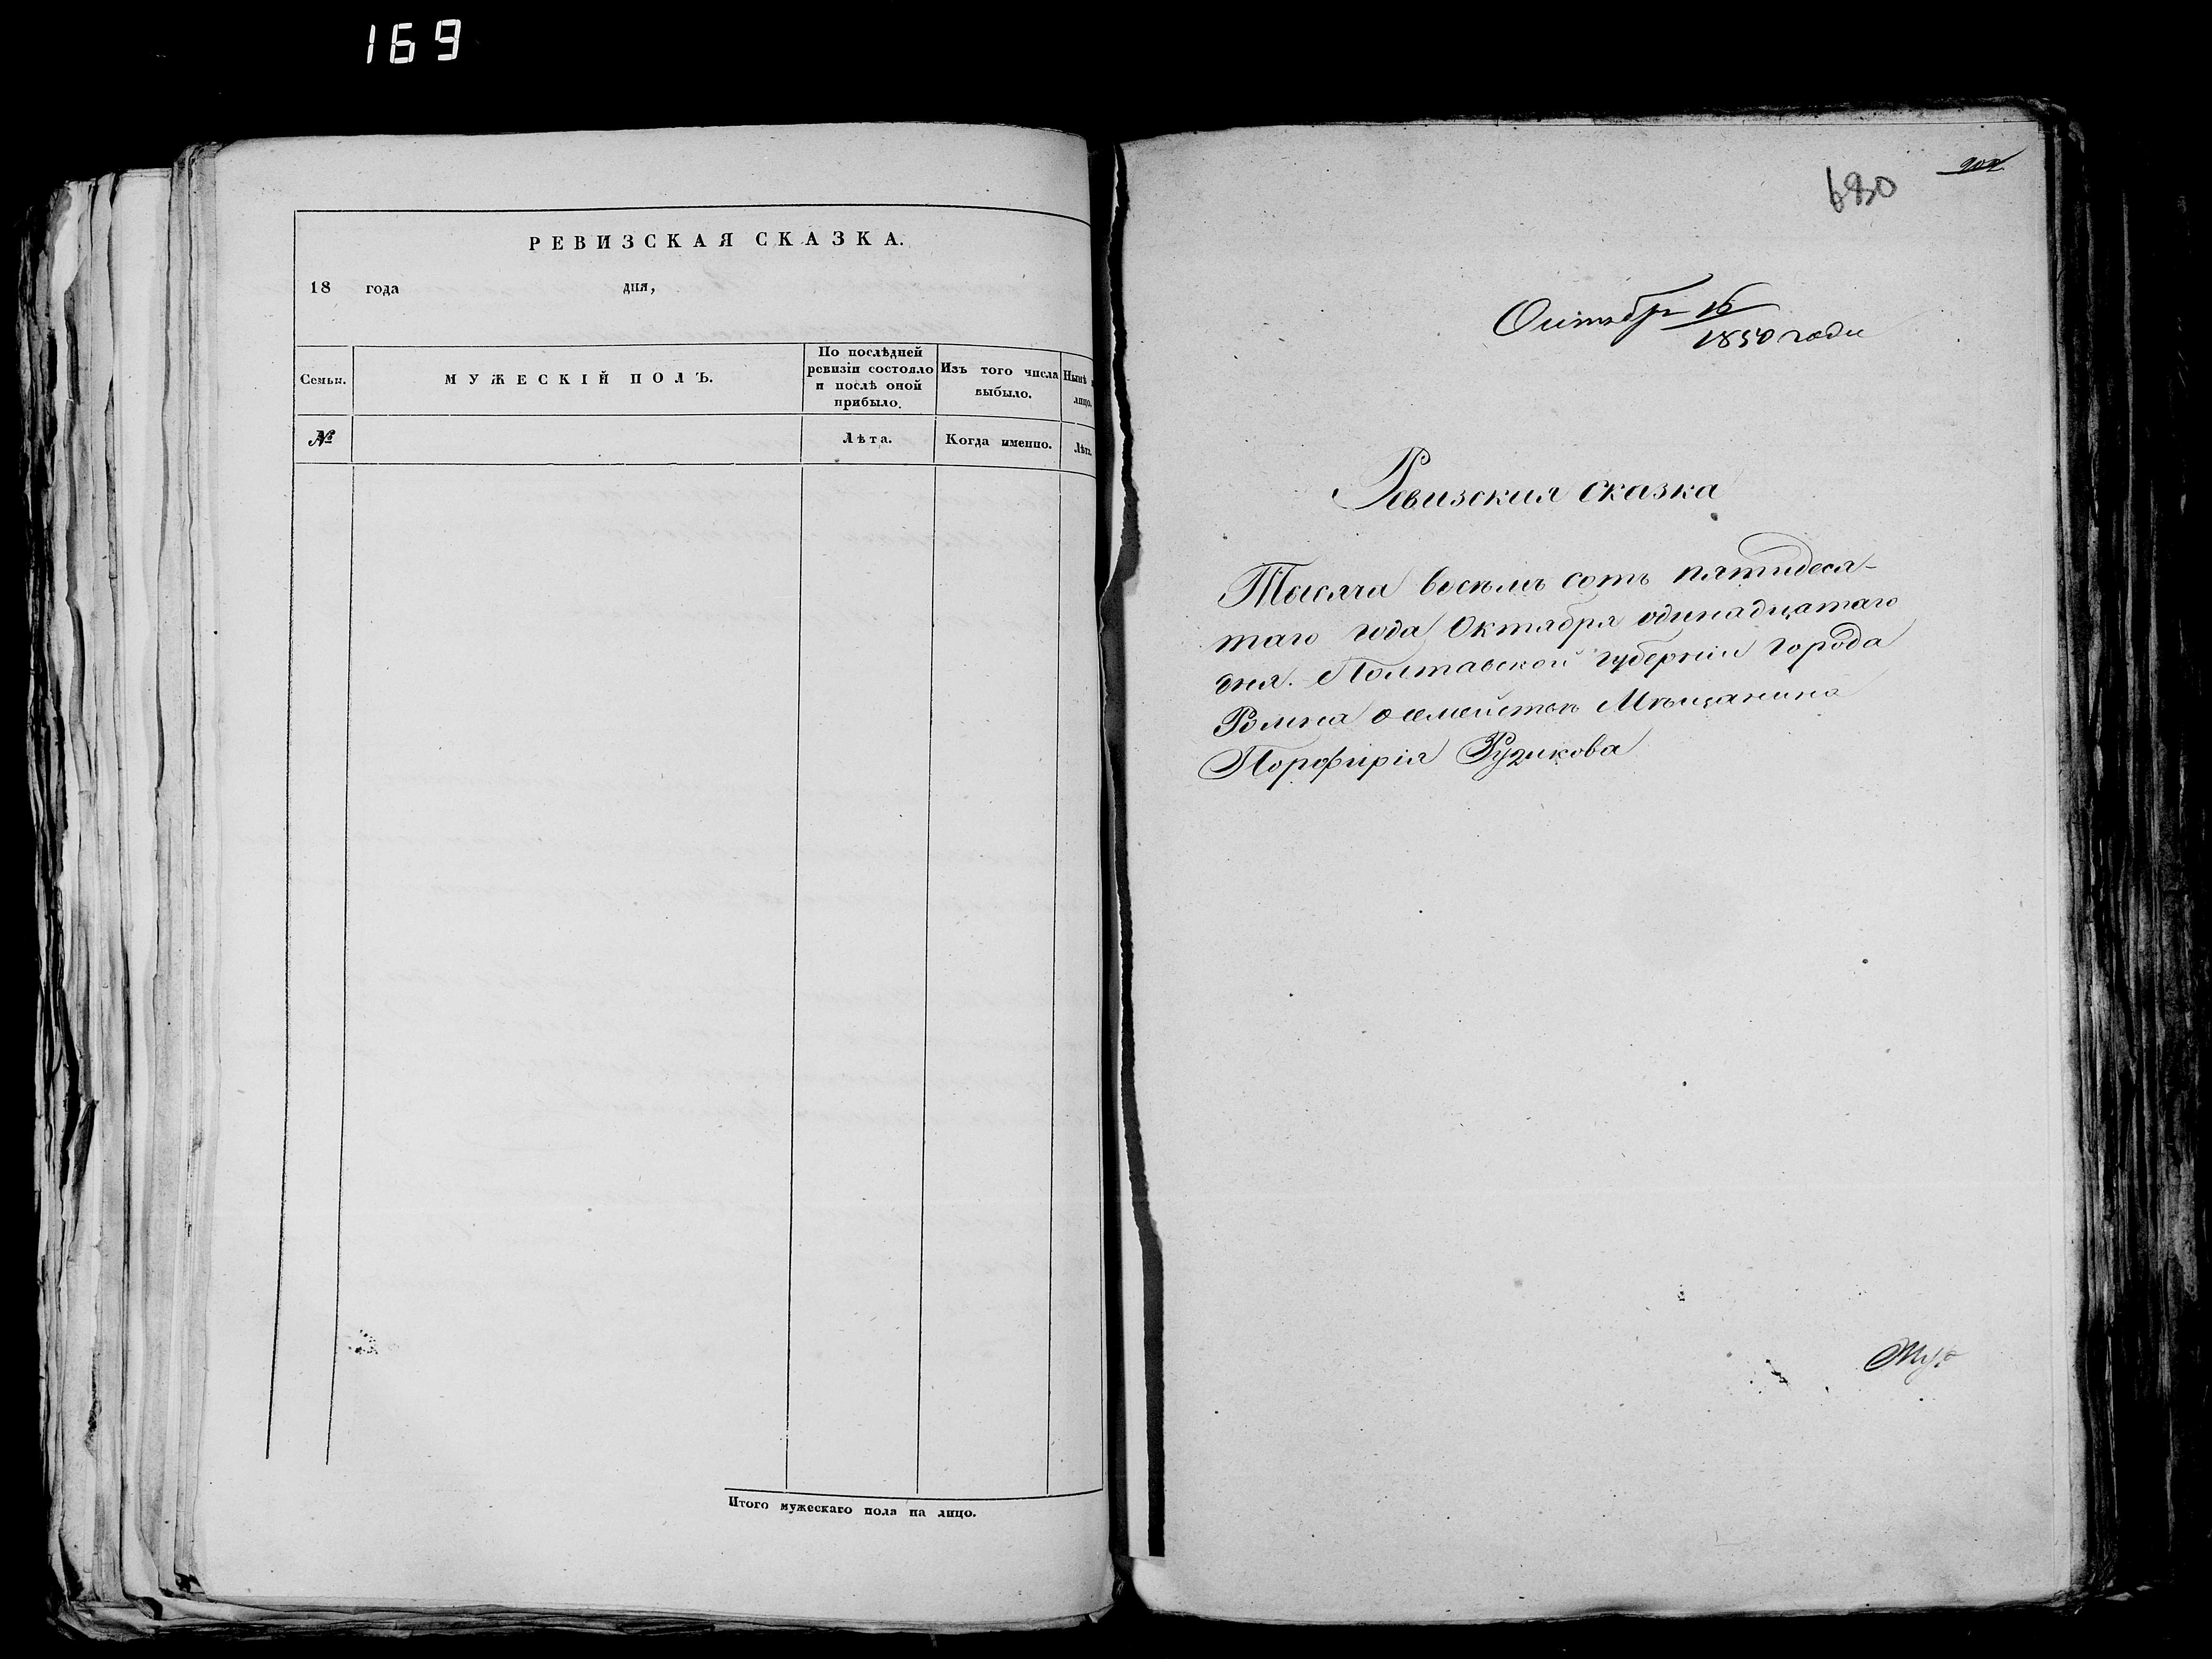 169
РЕВИЗСКАЯ СКАЗКА.
18 года дня,
Семьи.
МУЖЕСКІЙ ПОЛЪ.
По послѣдней
ревизіи состояло
и послѣ оной
прибыло.
Изъ того числа
выбыло.
Нынѣ
лицо.
№
Лѣта.
Когда именно.
Лѣта.
Итого мужескаго пола на лицо.
680
Октября 16
1850 года
Ревизская сказка
Тысяча восемь сотъ пятидеся-
таго года Октября одинадцатаго
дня. Полтавской губерніи города
Ромна о семействѣ Мѣщанина
Порфирія